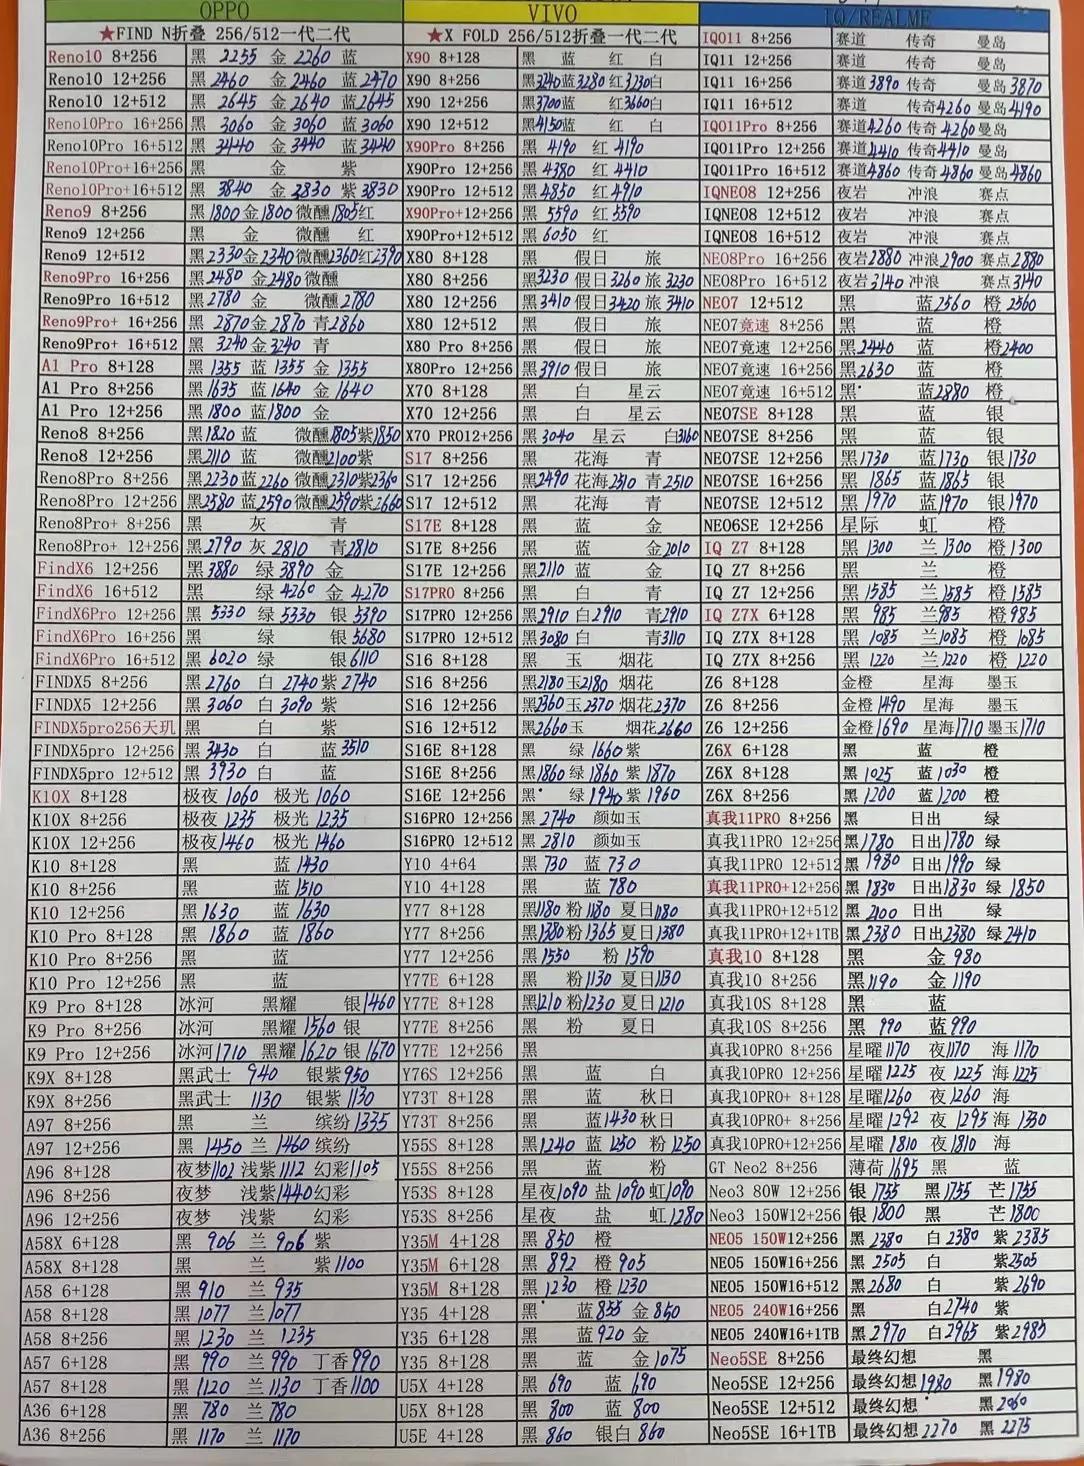 OPPO VIVO IQ/REALME
★FIND N折叠 256/512一代二代 ★X FOLD 256/512折叠一代二代 IQO11 8+256 赛道 传奇 曼岛
Reno10 8+256 黑 2255 金 2260 蓝 X90 8+128 黑 蓝 红 白 IQ11 12+256 赛道 传奇 曼岛
Reno10 12+256 黑 2460 金 2460 蓝 2470 X90 8+256 黑3240蓝3280红3230白 IQ11 16+256 赛道3890 传奇 曼岛3870
Reno10 12+512 黑 2645 金 2640 蓝2645 X90 12+256 黑3700蓝 红3660白 IQ11 16+512 赛道 传奇4260 曼岛4190
Reno10Pro 16+256 黑 3060 金 3060 蓝 3060 X90 12+512 黑4150蓝 红 白 IQO11Pro 8+256 赛道4260 传奇4260曼岛
Reno10Pro 16+512 黑 3440 金 3440 蓝 3440 X90Pro 8+256 黑 4190 红 4190 IQO11Pro 12+256 赛道4410 传奇4410 曼岛
Reno10Pro+16+256 黑 金 紫 X90Pro 12+256 黑 4380 红 4410 IQO11Pro 16+512 赛道4860 传奇4860 曼岛4860
Reno10Pro+16+512 黑 3840 金 3830 紫 3830 X90Pro 12+512 黑4850 红 4910 IQNEO8 12+256 夜岩 冲浪 赛点
Reno9 8+256 黑1800金1800微醺1805红 X90Pro+12+256 黑 5590 红 5590 IQNEO8 12+512 夜岩 冲浪 赛点
Reno9 12+256 黑 金 微醺 红 X90Pro+12+512 黑 6050 红 IQNEO8 16+512 夜岩 冲浪 赛点
Reno9 12+512 黑2330金2340微醺2360红2390 X80 8+128 黑 假日 旅 NEO8Pro 16+256 夜岩2880 冲浪2900 赛点2880
Reno9Pro 16+256 黑2480 金2480微醺 X80 8+256 黑3230 假日3260 旅 3230 NEO8Pro 16+512 夜岩3140冲浪 赛点3140
Reno9Pro 16+512 黑2780 金 微醺2780 X80 12+256 黑3410 假日3420 旅 3410 NEO7 12+512 黑 蓝2560 橙 2560
Reno9Pro+ 16+256 黑 2870金2870 青2860 X80 12+512 黑 假日 旅 NEO7竞速 8+256 黑 蓝 橙
Reno9Pro+ 16+512 黑 3240金3240 青 X80 Pro 8+256 黑 假日 旅 NEO7竞速 12+256 黑2440 蓝 橙2400
A1 Pro 8+128 黑 1355 蓝 1355 金 1355 X80Pro 12+256 黑3910假日 旅 NEO7竞速 16+256 黑2630 蓝 橙
A1 Pro 8+256 黑1635 蓝1640 金 1640 X70 8+128 黑 白 星云 NEO7竞速 16+512 黑 蓝2880 橙
A1 Pro 12+256 黑1800 蓝1800 金 X70 12+256 黑 白 星云 NEO7SE 8+128 黑 蓝 银
Reno8 8+256 黑1820 蓝 微醺1805紫1850 X70 PRO12+256 黑 3040 星云 白3160 NEO7SE 8+256 黑 蓝 银
Reno8 12+256 黑2110 蓝 微醺2100紫 S17 8+256 黑 花海 青 NEO7SE 12+256 黑1730 蓝1730 银1730
Reno8Pro 8+256 黑2230蓝2260 微醺2310紫2360 S17 12+256 黑2490 花海2510 青 2510 NEO7SE 16+256 黑 1865 蓝1865 银
Reno8Pro 12+256 黑2580蓝2590微醺2590紫2660 S17 12+512 黑 花海 青 NEO7SE 12+512 黑 1970 蓝1970 银 1970
Reno8Pro+ 8+256 黑 灰 青 S17E 8+128 黑 蓝 金 NEO6SE 12+256 星际 虹 橙
Reno8Pro+ 12+256 黑2790 灰 2810 青2810 S17E 8+256 黑 蓝 金2010 IQ Z7 8+128 黑 1300 兰1300 橙1300
FindX6 12+256 黑3880 绿 3890 金 S17E 12+256 黑2110 蓝 金 IQ Z7 8+256 黑 兰 橙
FindX6 16+512 黑 绿 4260 金 4270 S17PRO 8+256 黑 白 青 IQ Z7 12+256 黑1585 兰1585 橙1585
FindX6Pro 12+256 黑 5330 绿 5330 银 5390 S17PRO 12+256 黑2910 白2910 青2910 IQ Z7X 6+128 黑 985 兰985 橙985
FindX6Pro 16+256 黑 绿 银5680 S17PRO 12+512 黑3080白 青3110 IQ Z7X 8+128 黑 1085 兰1085 橙 1085
FindX6Pro 16+512 黑 6020 绿 银6110 S16 8+128 黑 玉 烟花 IQ Z7X 8+256 黑 1220 兰1220 橙 1220
FINDX5 8+256 黑 2760 白 2740 紫 2740 S16 8+256 黑2180玉2180 烟花 Z6 8+128 金橙 星海 墨玉
FINDX5 12+256 黑 3060 白 3090 紫 S16 12+256 黑2360玉2370 烟花2370 Z6 8+256 金橙1490 星海 墨玉
FINDX5pro256天玑 黑 白 紫 S16 12+512 黑2660玉 烟花2660 Z6 12+256 金橙1690 星海1710 墨玉1710
FINDX5pro 12+256 黑 3430 白 蓝3510 S16E 8+128 黑 绿 1660紫 Z6X 6+128 黑 蓝 橙
FINDX5pro 12+512 黑 3930 白 蓝 S16E 8+256 黑1860 绿 1860 紫 1870 Z6X 8+128 黑 1025 蓝1030 橙
K10X 8+128 极夜 1060 极光 1060 S16E 12+256 黑 绿 1940紫 1960 Z6X 8+256 黑 1200 蓝1200 橙
K10X 8+256 极夜 1235 极光 1235 S16PRO 12+256 黑 2740 颜如玉 真我11PRO 8+256 黑 日出 绿
K10X 12+256 极夜1460 极光 1460 S16PRO 12+512 黑 2810 颜如玉 真我11PRO 12+256 黑1780 日出1780 绿
K10 8+128 黑 蓝1430 Y10 4+64 黑 730 蓝 730 真我11PRO 12+512 黑 1980 日出1990 绿
K10 8+256 黑 蓝1510 Y10 4+128 黑 蓝 780 真我11PRO+12+256 黑 1830 日出1830 绿 1850
K10 12+256 黑1630 蓝1630 Y77 8+128 黑1180粉1180 夏日1180 真我11PRO+12+512 黑 2100 日出 绿
K10 Pro 8+128 黑 1860 蓝 1860 Y77 8+256 黑1380粉1365 夏日1380 真我11PRO+12+1TB 黑2380 日出2380 绿2410
K10 Pro 8+256 黑 蓝 Y77 12+256 黑1550 粉1590 真我10 8+128 黑 金 980
K10 Pro 12+256 黑 蓝 Y77E 6+128 黑 粉1130 夏日1130 真我10 8+256 黑1190 金1190
K9 Pro 8+128 冰河 黑耀 银1460 Y77E 8+128 黑1210粉1230 夏日1210 真我10S 8+128 黑 蓝
K9 Pro 8+256 冰河 黑耀 1560 银 Y77E 8+256 黑 粉 夏日 真我10S 8+256 黑 990 蓝990
K9 Pro 12+256 冰河1710 黑耀1620 银 1670 Y77E 12+256 黑 真我10PRO 8+256 星曜1170 夜1170 海1170
K9X 8+128 黑武士 940 银紫950 Y76S 12+256 黑 蓝 白 真我10PRO 12+256 星曜1225 夜1225 海1225
K9X 8+256 黑武士 1130 银紫 1130 Y73T 8+128 黑 蓝 秋日 真我10PRO+ 8+128 星曜1260 夜1260 海
A97 8+256 黑 兰 缤纷1335 Y73T 8+256 黑 蓝1430秋日 真我10PRO+ 8+256 星曜1292 夜 1295海 1330
A97 12+256 黑 1450 兰1460缤纷 Y55S 8+128 黑1240 蓝 1250 粉 1250 真我10PRO+12+256 星曜1810 夜1810 海
A96 8+128 夜梦1102 浅紫1112 幻彩1105 Y55S 8+256 黑 蓝 粉 GT Neo2 8+256 薄荷1695 黑 蓝
A96 8+256 夜梦 浅紫1440幻彩 Y53S 8+128 星夜1090 盐 1090 虹1090 Neo3 80W 12+256 银 1755 黑1755 芒1755
A96 12+256 夜梦 浅紫 幻彩 Y53S 8+256 星夜 盐 虹 1280 Neo3 150W12+256 银 1800 黑 芒1800
A58X 6+128 黑 906 兰 906 紫 Y35M 4+128 黑 850 橙 NEO5 150W12+256 黑 2380 白 2380 紫 2385
A58X 8+128 黑 兰 紫1100 Y35M 6+128 黑 892 橙 905 NEO5 150W16+256 黑 2505 白 紫2505
A58 6+128 黑 910 兰 935 Y35M 8+128 黑 1230 橙 1230 NEO5 150W16+512 黑2680 白 紫 2690
A58 8+128 黑 1077 兰1077 Y35 4+128 黑 蓝855 金 850 NEO5 240W16+256 黑 白2740 紫
A58 8+256 黑1230 兰 1235 Y35 6+128 黑 蓝920 金 NEO5 240W16+1TB 黑2970 白2965 紫2985
A57 6+128 黑 990 兰 990 丁香990 Y35 8+128 黑 蓝 金1075 Neo5SE 8+256 最终幻想 黑
A57 8+128 黑 1120 兰 1130 丁香1100 U5X 4+128 黑 690 蓝 690 Neo5SE 12+256 最终幻想1980 黑1980
A36 6+128 黑 780 兰780 U5X 8+128 黑 800 蓝 800 Neo5SE 12+512 最终幻想 黑2060
A36 8+256 黑 1170 兰 1170 U5E 4+128 黑 860 银白 860 Neo5SE 16+1TB 最终幻想2270 黑 2275